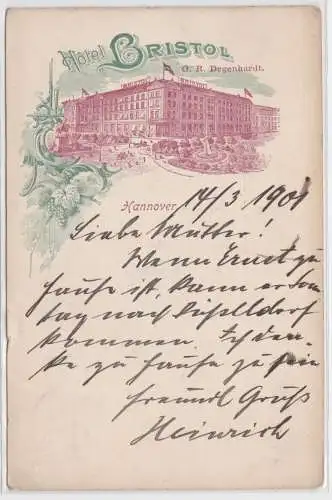 Hôtel BRISTOL
O. R. Degenhardt.
Hannover, 14/3 1901
Liebe Mutter!
Wenn Ernst zu
hause ist, kann er Son
tag nach Düsseldorf
kommen. Ich den-
ke zu hause zu sein
freundl Gruß
Heinrich